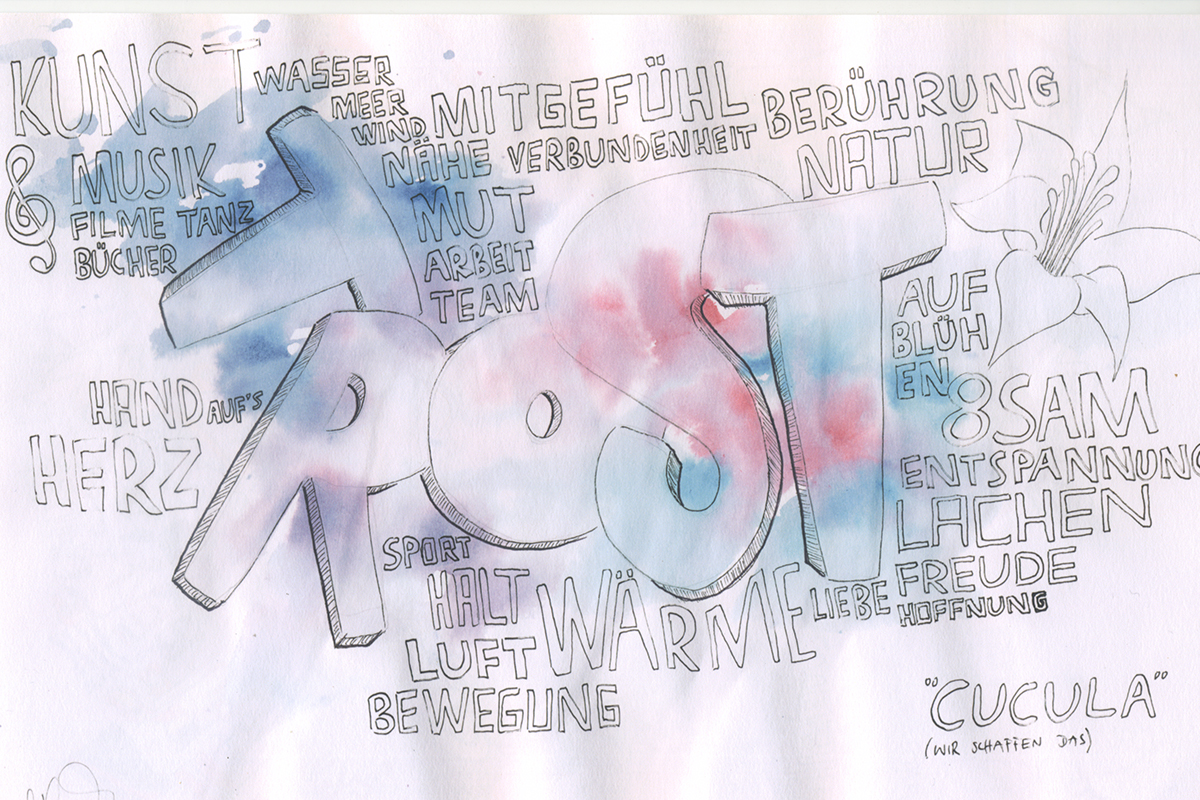 KUNST
& MUSIK
FILME TANZ
BÜCHER
WASSER
MEER
WIND
NÄHE
MITGEFÜHL
VERBUNDENHEIT
BERÜHRUNG
NATUR
MUT
ARBEIT
TEAM
TROST
AUF
BLÜH
EN
8SAM
ENTSPANNUNG
LACHEN
FREUDE
HOFFNUNG
LIEBE
HAND AUF'S
HERZ
SPORT
HALT
WÄRME
LUFT
BEWEGUNG
"CUCULA"
(WIR SCHAFFEN DAS)